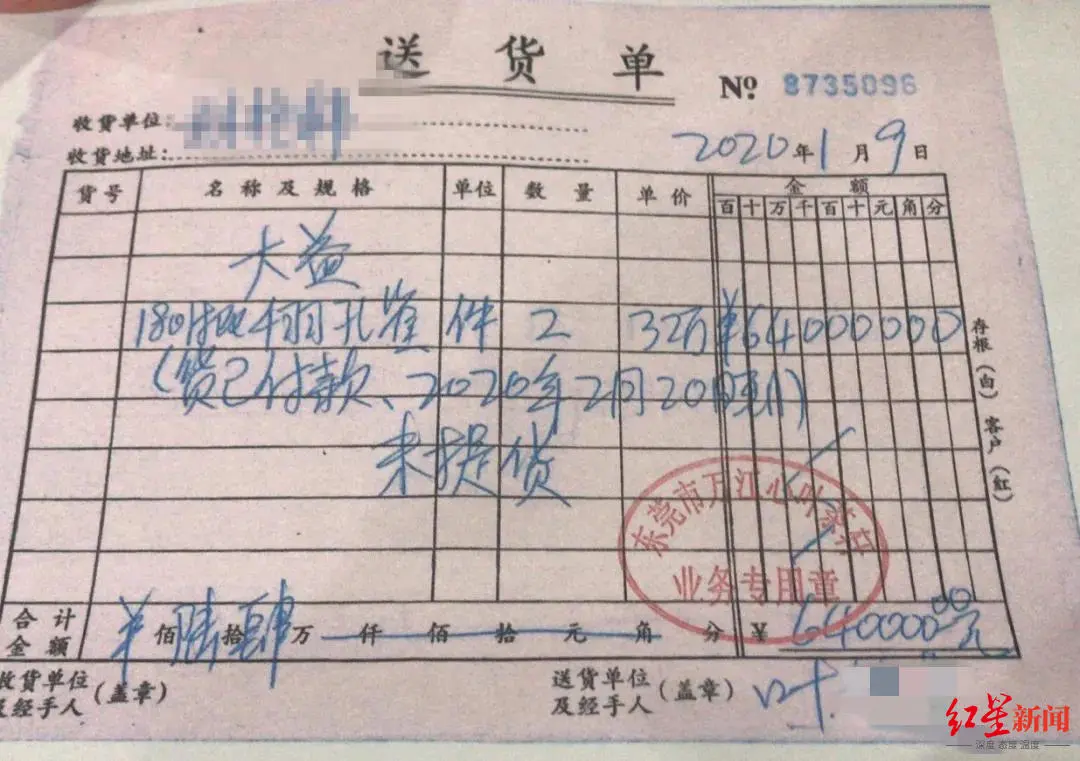 送货单
№ 8735096
收货单位：
收货地址：
2020年1月9日
货号 名称及规格 单位 数量 单价 金额
百十万千百十元角分
大益
1801批 千羽孔雀 件 2 32万 ¥64000000
(货已付款、2020年2月20日
未提货
存根（白）客户（红）
东莞市万江心叶茶店
业务专用章
合计金额 ¥ 佰陆拾肆万仟佰拾元角分 ¥ 640000.00元
收货单位及经手人（盖章）
送货单位及经手人（盖章）叶
红星新闻
深度 态度 温度